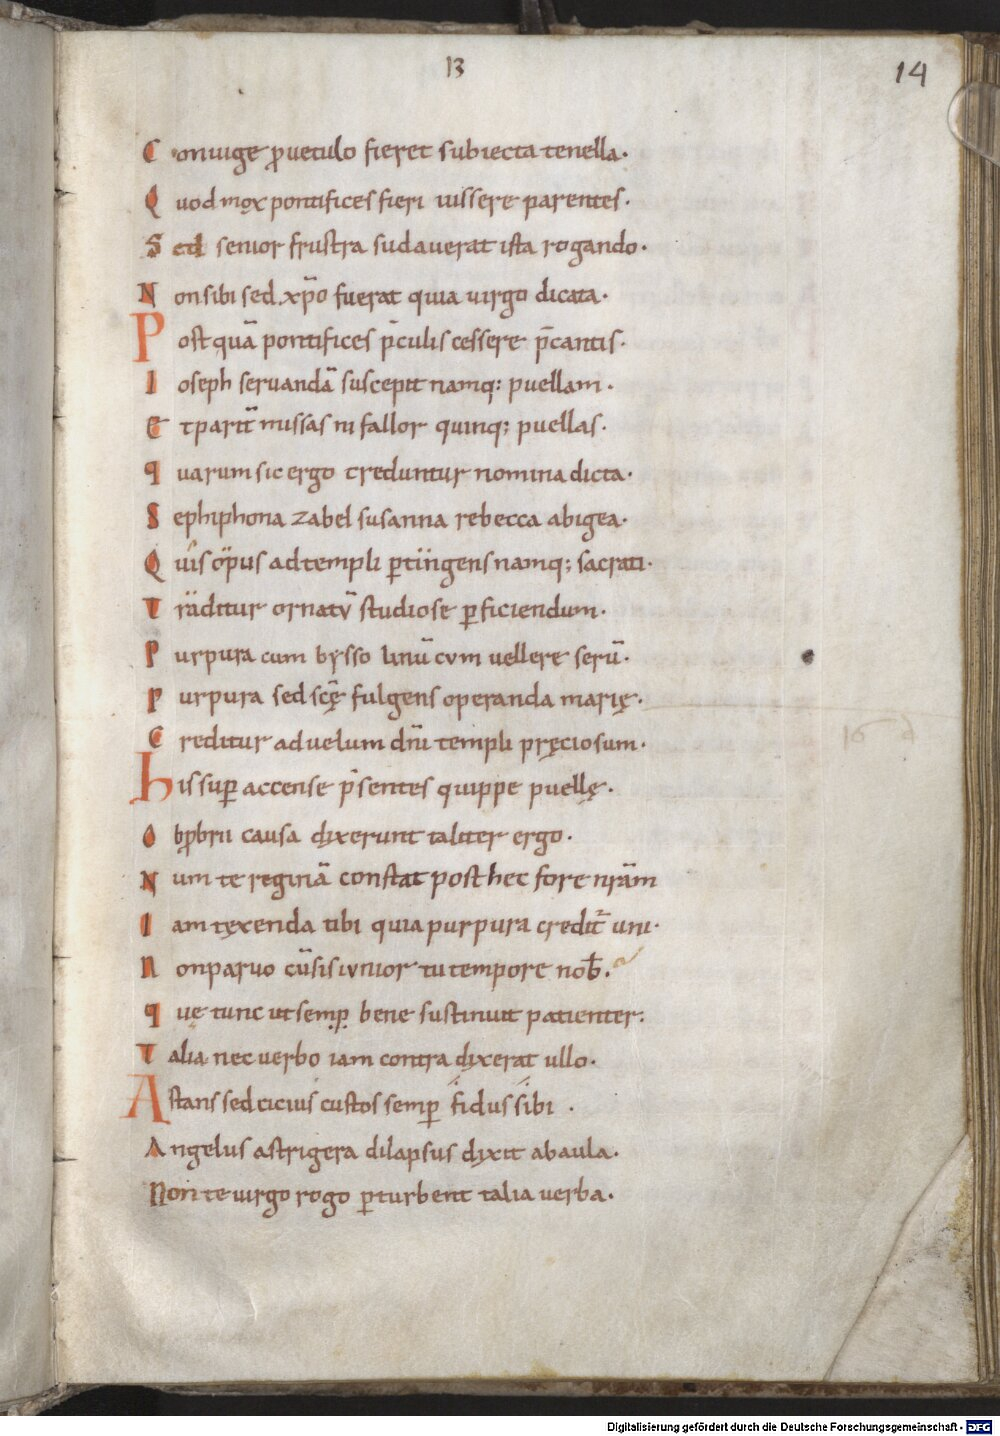 13
14
Coniuge p̄uetulo fieret subiecta tenella·
Quod mox pontifices fieri iussere parentes·
Sed senior frustra sudauerat ista rogando·
Non sibi sed xp̄o fuerat quia uirgo dicata·
Postquā pontifices p̄culis cessere p̄cantis·
Ioseph seruandā suscepit namq; puellam·
Et parit̄ missas ni fallor quinq; puellas·
quarum sic ergo creduntur nomina dicta·
Sephiphona zabel susanna rebecca abigea·
Quis op̄us ad templi ꝑtingens namq; sacrati·
Traditur ornatū studiose ꝑficiendum·
Purpura cum bysso linū cum uellere serū·
Purpura sed scę̄ fulgens operanda marię·
Creditur ad uelum dn̄i templi pręciosum·
his suꝑ accense p̄sentes quippe puellę·
Obꝓbrii causa dixerunt taliter ergo·
Num te reginā constat post hec fore nr̄am
Iam texenda tibi quia purpura credit̄ uni·
non paruo cū sis iunior tu tempore nob̄·
que tunc ut semꝑ bene sustinuit patienter:
Talia nec uerbo iam contra dixerat ullo·
Astans sed cicius custos semꝑ fidus sibi·
Angelus astrigera dilapsus dixit ab aula·
Non te uirgo rogo ꝑturbent talia uerba·
Digitalisierung gefördert durch die Deutsche Forschungsgemeinschaft - DFG